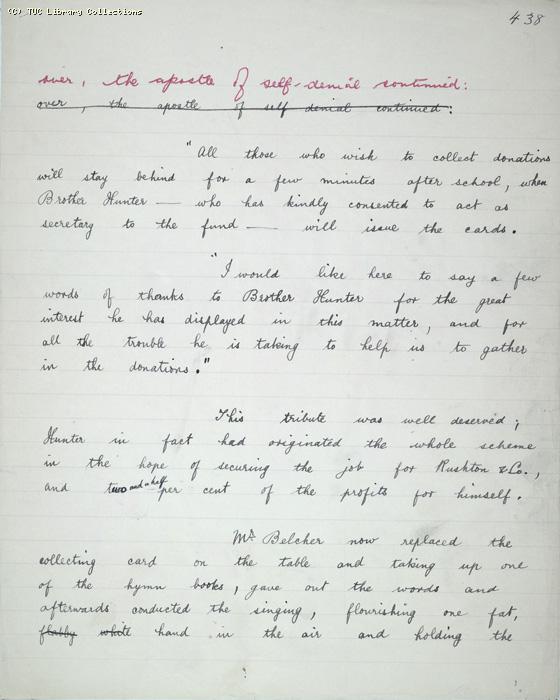 (C) TUC Library Collections
438
over, the apostle of self-denial continued:
over, the apostle of self denial continued:
"All those who wish to collect donations
will stay behind for a few minutes after school, when
Brother Hunter — who has kindly consented to act as
secretary to the fund — will issue the cards.
"I would like here to say a few
words of thanks to Brother Hunter for the great
interest he has displayed in this matter, and for
all the trouble he is taking to help us to gather
in the donations."
This tribute was well deserved;
Hunter in fact had originated the whole scheme
in the hope of securing the job for Rushton & Co.,
and two and a half per cent of the profits for himself.
Mr Belcher now replaced the
collecting card on the table and taking up one
of the hymn books, gave out the words and
afterwards conducted the singing, flourishing one fat,
flabby white hand in the air and holding the